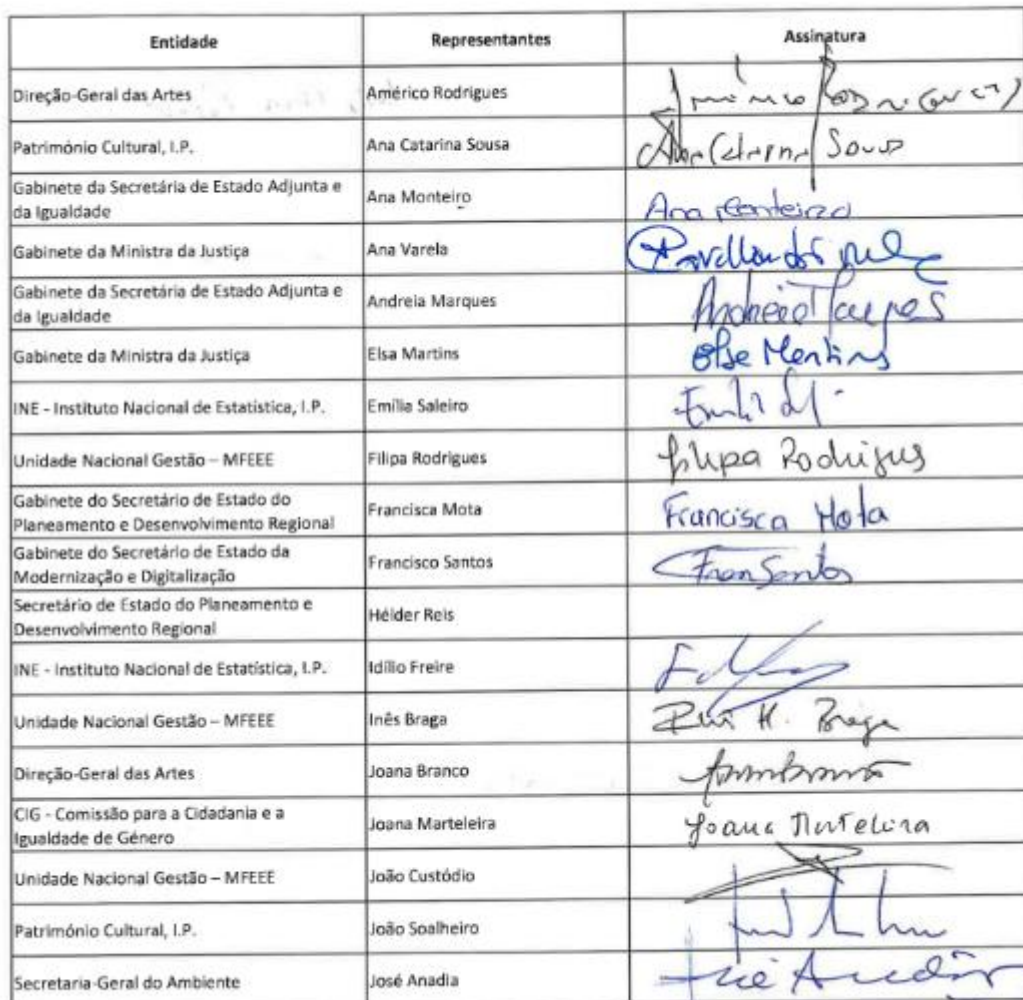 Entidade Representantes Assinatura
Direção-Geral das Artes Américo Rodrigues Américo Rodrigues
Património Cultural, I.P. Ana Catarina Sousa Ana Catarina Sousa
Gabinete da Secretária de Estado Adjunta e
da Igualdade Ana Monteiro Ana Monteiro
Gabinete da Ministra da Justiça Ana Varela
Gabinete da Secretária de Estado Adjunta e
da Igualdade Andreia Marques Andreia Marques
Gabinete da Ministra da Justiça Elsa Martins Elsa Martins
INE - Instituto Nacional de Estatística, I.P. Emília Saleiro
Unidade Nacional Gestão – MFEEE Filipa Rodrigues Filipa Rodrigues
Gabinete do Secretário de Estado do
Planeamento e Desenvolvimento Regional Francisca Mota Francisca Mota
Gabinete do Secretário de Estado da
Modernização e Digitalização Francisco Santos Fran Santos
Secretário de Estado do Planeamento e
Desenvolvimento Regional Hélder Reis
INE - Instituto Nacional de Estatística, I.P. Idílio Freire
Unidade Nacional Gestão – MFEEE Inês Braga H. Braga
Direção-Geral das Artes Joana Branco
CIG - Comissão para a Cidadania e a
Igualdade de Género Joana Marteleira Joana Marteleira
Unidade Nacional Gestão – MFEEE João Custódio
Património Cultural, I.P. João Soalheiro
Secretaria-Geral do Ambiente José Anadia José Anadia